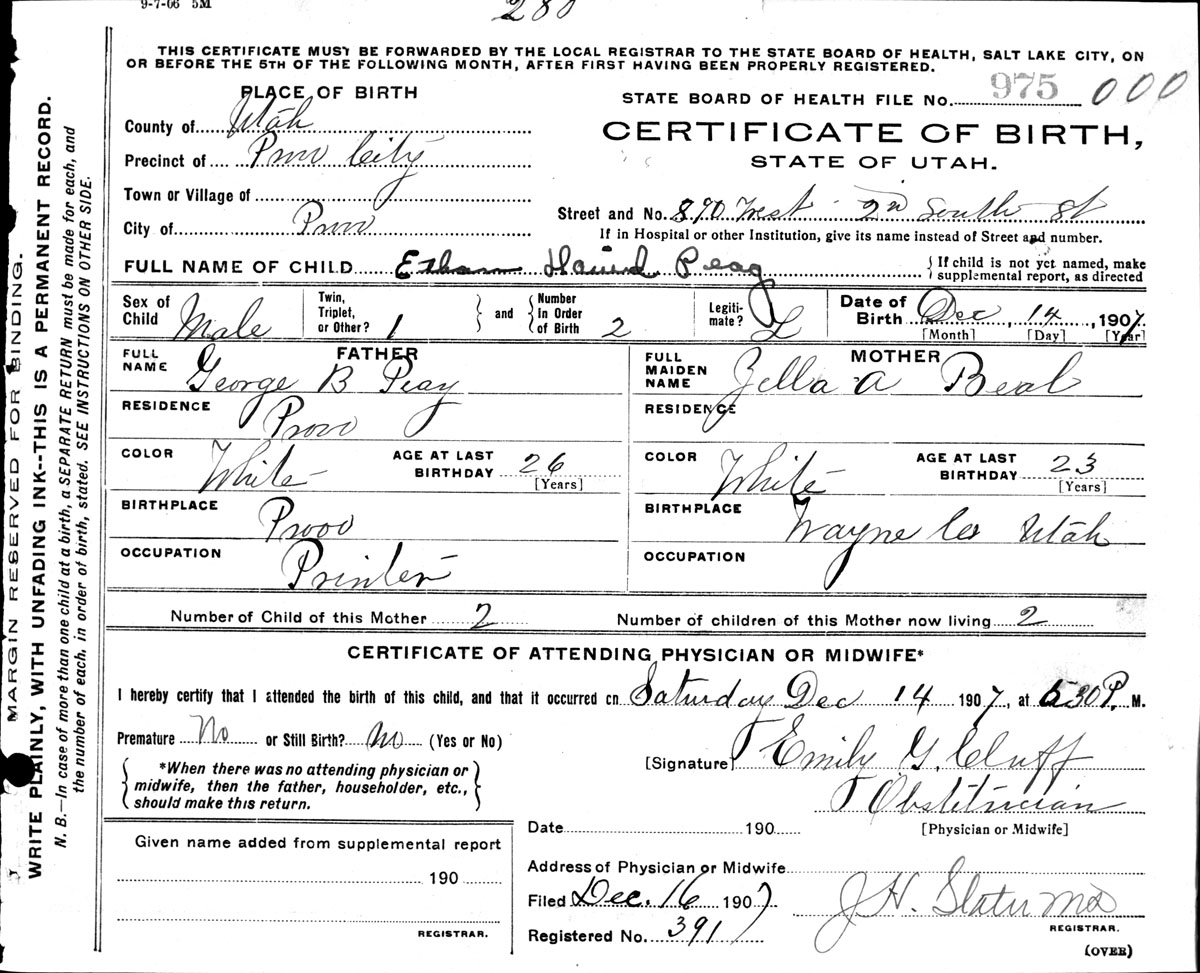 9-7-06 5M
280
THIS CERTIFICATE MUST BE FORWARDED BY THE LOCAL REGISTRAR TO THE STATE BOARD OF HEALTH, SALT LAKE CITY, ON
OR BEFORE THE 5TH OF THE FOLLOWING MONTH, AFTER FIRST HAVING BEEN PROPERLY REGISTERED.
PLACE OF BIRTH
STATE BOARD OF HEALTH FILE No. 975 000
County of Utah
CERTIFICATE OF BIRTH,
STATE OF UTAH.
Precinct of Provo City
Town or Village of
City of Provo
Street and No. 890 West 2nd South St
If in Hospital or other Institution, give its name instead of Street and number.
FULL NAME OF CHILD Peay
If child is not yet named, make
supplemental report, as directed
Sex of Child Male
Twin, Triplet, or Other? 1
and
Number In Order of Birth 2
Legitimate? L
Date of Birth Dec 14, 1907
[Month] [Day] [Year]
FATHER
FULL NAME George B Peay
RESIDENCE Provo
COLOR White
AGE AT LAST BIRTHDAY 26
[Years]
BIRTHPLACE Provo
OCCUPATION Printer
MOTHER
FULL MAIDEN NAME Zella A Beal
RESIDENCE
COLOR White
AGE AT LAST BIRTHDAY 23
[Years]
BIRTHPLACE Wayne Co Utah
OCCUPATION
Number of Child of this Mother 2
Number of children of this Mother now living 2
CERTIFICATE OF ATTENDING PHYSICIAN OR MIDWIFE*
I hereby certify that I attended the birth of this child, and that it occurred on Saturday Dec 14 1907, at 30 P. M.
Premature No or Still Birth? No (Yes or No)
*When there was no attending physician or
midwife, then the father, householder, etc.,
should make this return.
[Signature] Emily G. Cluff
Obstitrician
[Physician or Midwife]
Date 190
Given name added from supplemental report
190
REGISTRAR.
Address of Physician or Midwife
Filed Dec. 16 1907
Registered No. 391
J H. Slater MD
REGISTRAR.
(OVER)
MARGIN RESERVED FOR BINDING.
WRITE PLAINLY, WITH UNFADING INK--THIS IS A PERMANENT RECORD.
N. B.—In case of more than one child at a birth, a SEPARATE RETURN must be made for each, and
the number of each, in order of birth, stated. SEE INSTRUCTIONS ON OTHER SIDE.